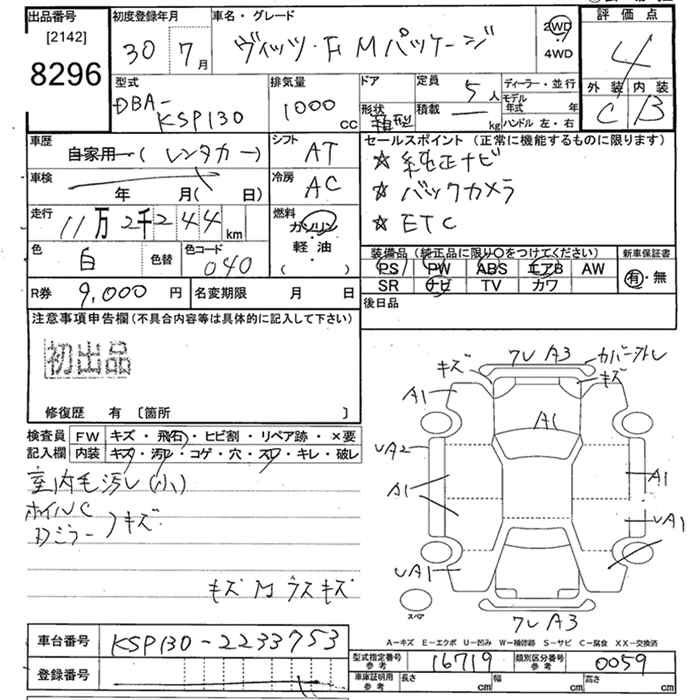 出品番号
[2142]
8296
初度登録年月
30 7月
車名・グレード
ヴィッツ・F Mパッケージ
2WD
4WD
評価点
4
外装 内装
C B
型式
DBA-
KSP130
排気量
1000 CC
ドア
形状
定員 5人
積載 — kg
ディーラー・並行
モデル年式 年
ハンドル 左・右
車歴
自家用 (レンタカー)
シフト AT
車検
年 月( 日)
冷房 AC
セールスポイント (正常に機能するものに限ります)
☆ 純正ナビ
☆ バックカメラ
☆ ETC
走行
11万2千244km
燃料
ガソリン
軽・油
( )
色 白 色替
色コード 040
装備品 (純正品に限り○をつけてください)
PS PW ABS エアB AW
SR ナビ TV カワ
新車保証書
有・無
R券 9,000円
名変期限 月 日
後日品
注意事項申告欄(不具合内容等は具体的に記入して下さい)
初出品
修復歴 有 [箇所 ]
検査員記入欄
FW キズ・飛石・ヒビ割・リペア跡・×要
内装 キズ・汚レ・コゲ・穴・スレ・キレ・破レ
室内毛汚レ(小)
ホイルC
Dミラー
キズ
キズ M ラスキズ
フレA3
カバー外レ
キズ
キズ
A1
A1
UA2
A1
A1
UA1
UA1
スペア
フレA3
A-キズ E-エクボ U-凹み W-補修跡 S-サビ C-腐食 XX-交換済
車台番号 KSP130-2233753
登録番号
型式指定番号参考 16719
類別区分番号参考 0059
車庫証明用参考
長さ cm
幅 cm
高さ cm